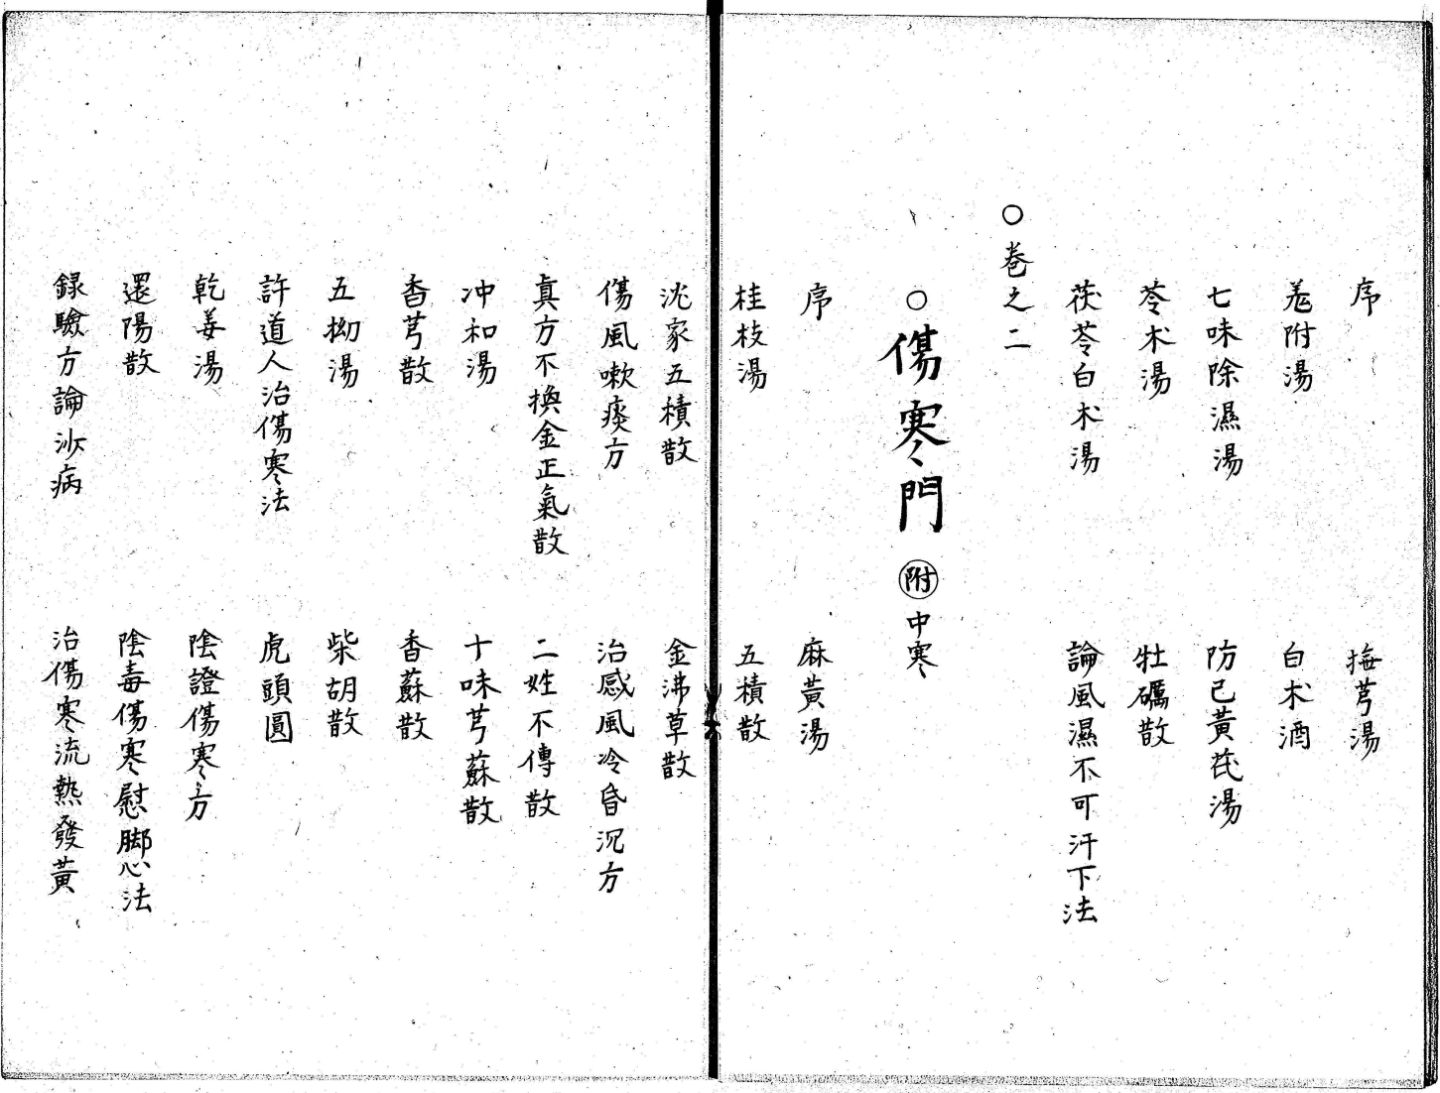 序　撫芎湯
羗附湯　白朮酒
七味除濕湯　防己黃芪湯
苓朮湯　牡礪散
茯苓白朮湯　論風濕不可汗下法
○卷之二
○傷寒門　附中寒
序　麻黃湯
桂枝湯　五積散
沈家五積散　金沸草散
傷風嗽痰方　治感風冷昏沉方
眞方不換金正氣散　二姓不傳散
冲和湯　十味芎蘇散
香芎散　香蘇散
五拗湯　柴胡散
許道人治傷寒法　虎頭圓
乾姜湯　陰證傷寒方
還陽散　陰毒傷寒慰脚心法
録驗方論沙病　治傷寒流熱發黃